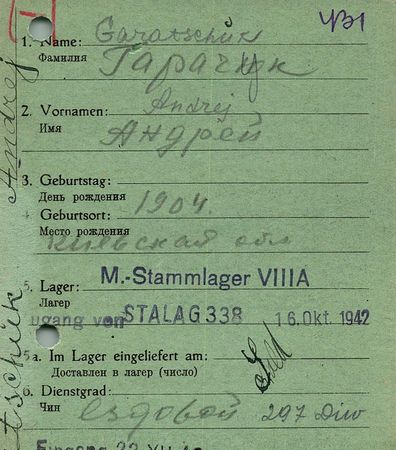 1. Name: Garatschuk
Фамилия Гарачук
2. Vornamen: Andrej
Имя Андрей
3. Geburtstag:
День рождения 1904.
4 Geburtsort:
Место рождения
Киевская обл
5. Lager: M.-Stammlager VIIIA
Лагер
ugang von STALAG 338 16. Okt. 1942
5a. Im Lager eingeliefert am:
Доставлен в лагер (число)
6. Dienstgrad:
Чин ездовой 297 Div
Andrej